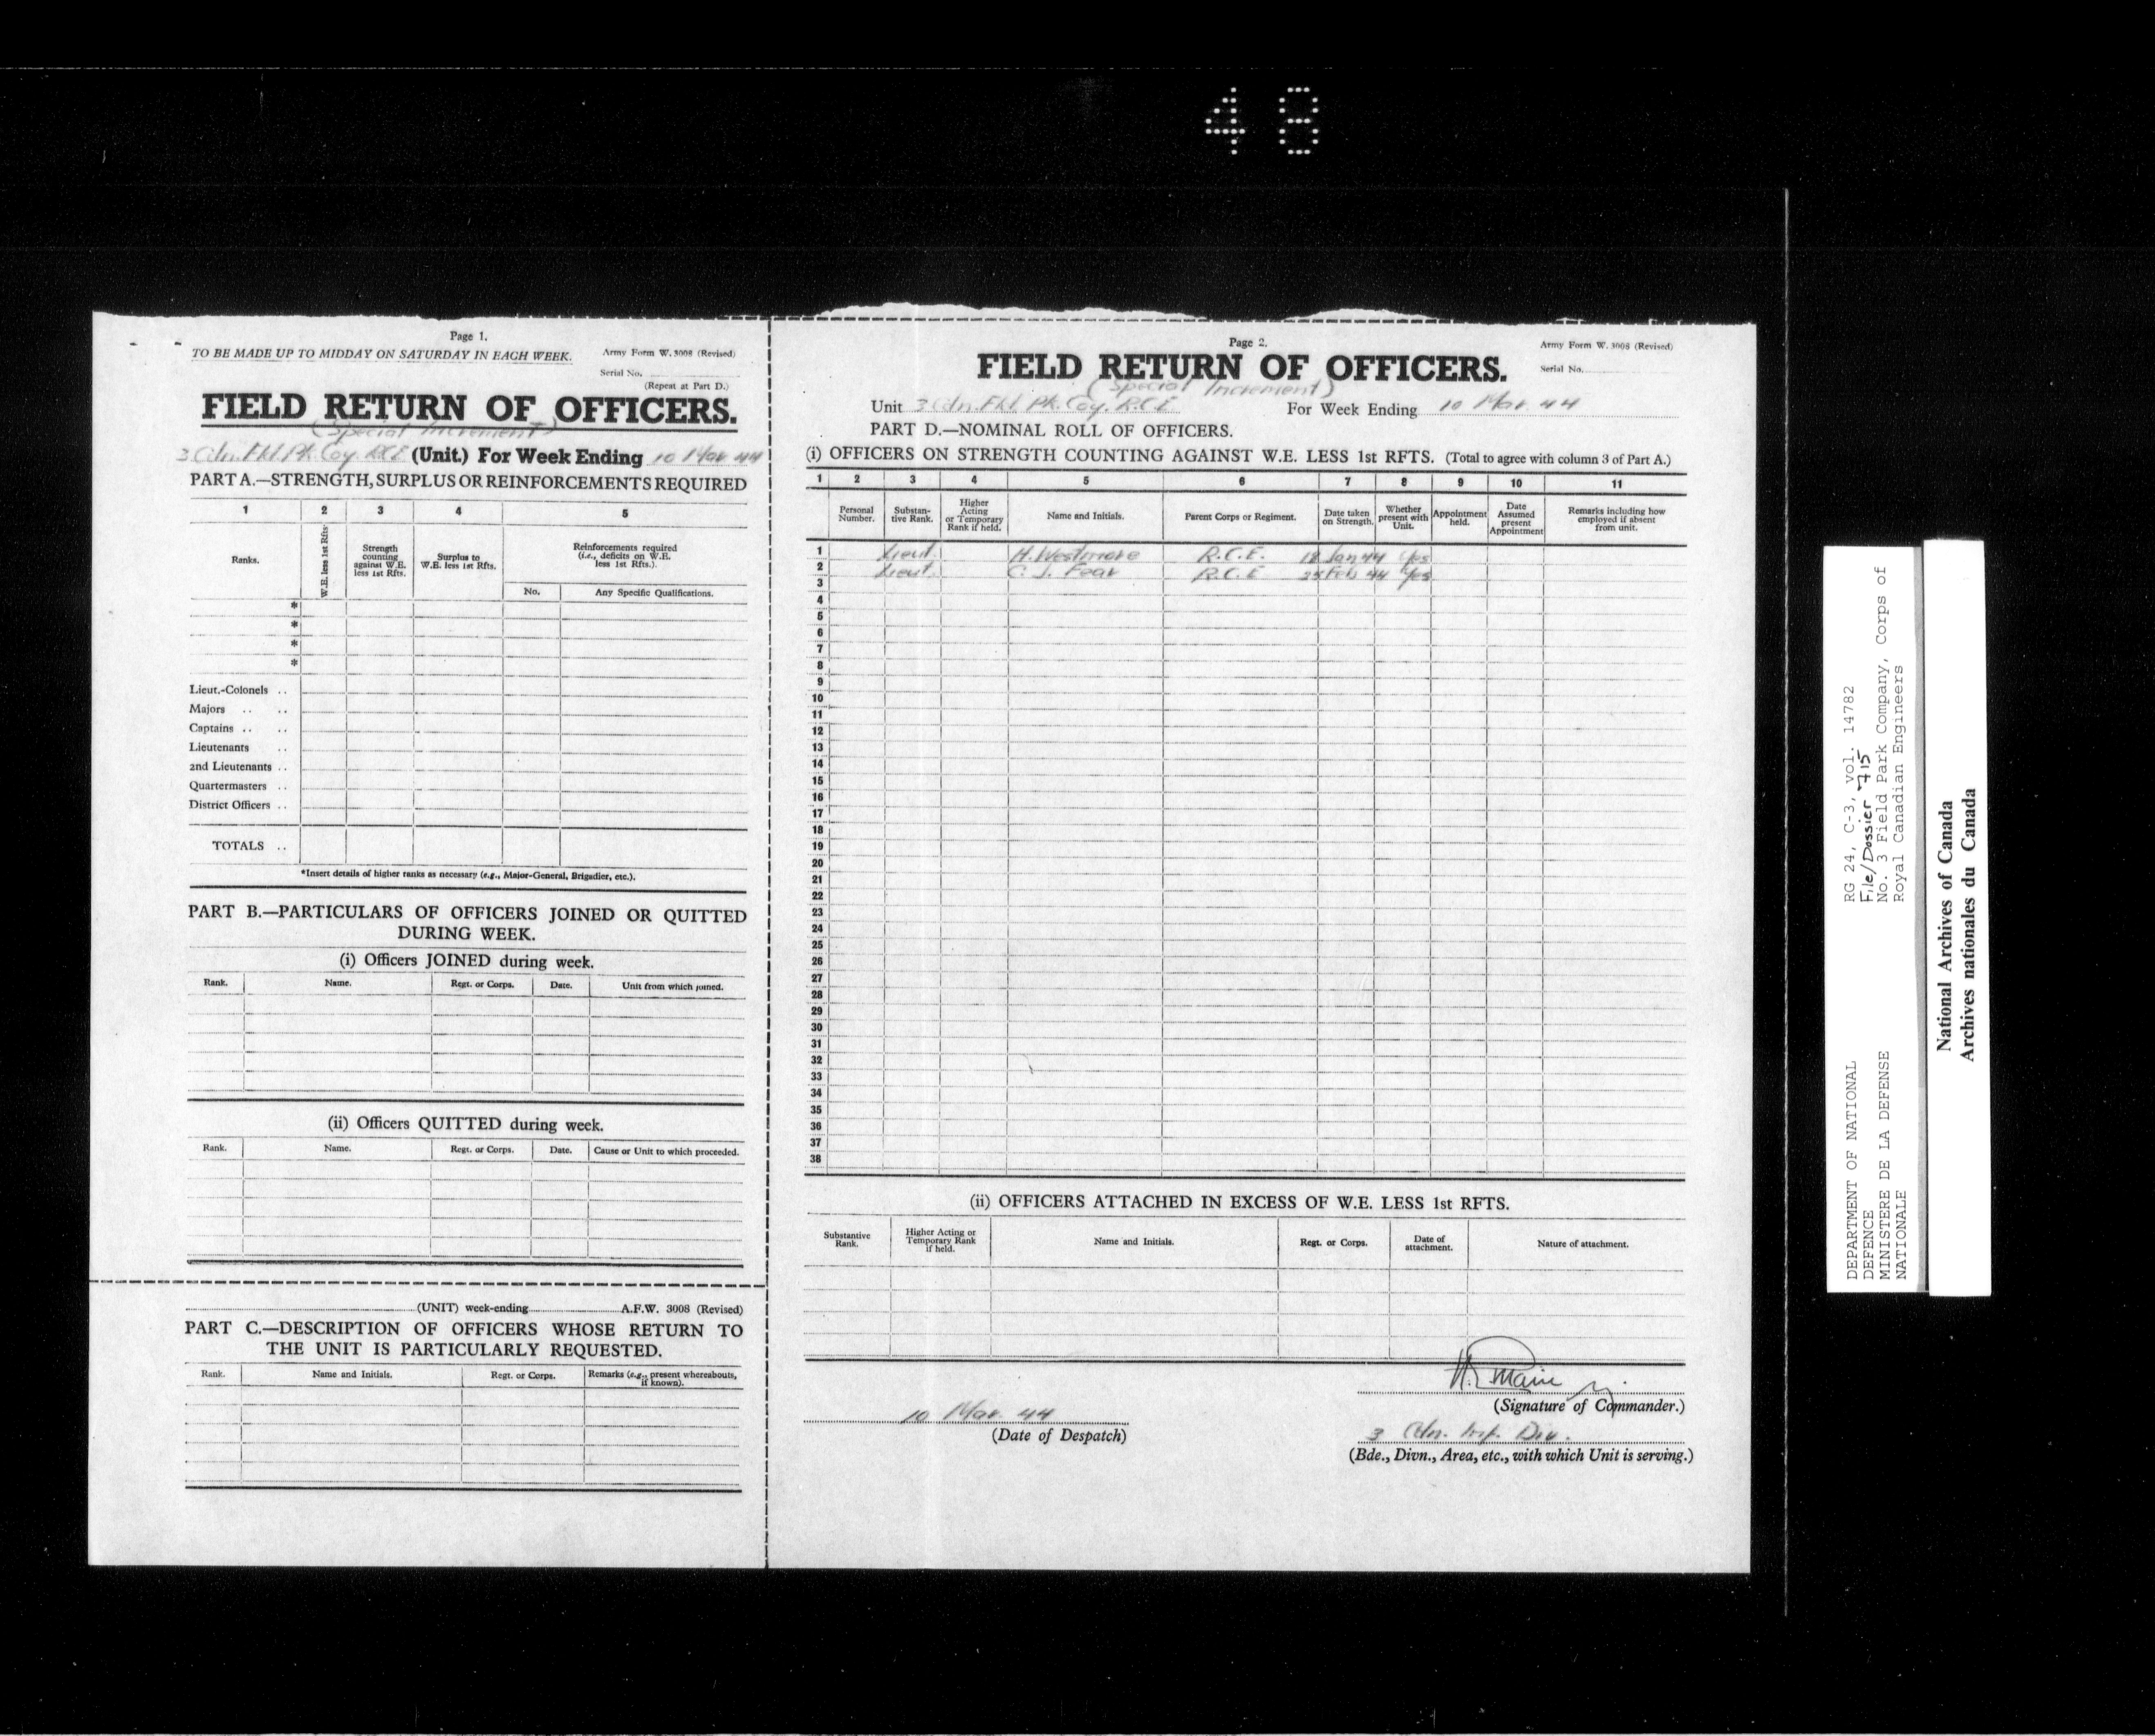 48
Page 1.
TO BE MADE UP TO MIDDAY ON SATURDAY IN EACH WEEK.
Army Form W. 3008 (Revised)
Serial No.
(Repeat at Part D.)
FIELD RETURN OF OFFICERS.
(Special Increment)
3 Cdn. Fld. Pk. Coy. RCE (Unit.) For Week Ending 10 Mar 44
PART A.—STRENGTH, SURPLUS OR REINFORCEMENTS REQUIRED
1 2 3 4 5
Ranks.
W.E. less 1st Rfts
Strength counting against W.E. less 1st Rfts.
Surplus to W.E. less 1st Rfts.
Reinforcements required (i.e., deficits on W.E. less 1st Rfts.).
No.
Any Specific Qualifications.
*
*
*
*
Lieut.-Colonels ..
Majors .. ..
Captains .. ..
Lieutenants ..
2nd Lieutenants ..
Quartermasters ..
District Officers ..
TOTALS ..
*Insert details of higher ranks as necessary (e.g., Major-General, Brigadier, etc.).
PART B.—PARTICULARS OF OFFICERS JOINED OR QUITTED
DURING WEEK.
(i) Officers JOINED during week.
Rank. Name. Regt. or Corps. Date. Unit from which joined.
(ii) Officers QUITTED during week.
Rank. Name. Regt. or Corps. Date. Cause or Unit to which proceeded.
(UNIT) week-ending A.F.W. 3008 (Revised)
PART C.—DESCRIPTION OF OFFICERS WHOSE RETURN TO
THE UNIT IS PARTICULARLY REQUESTED.
Rank. Name and Initials. Regt. or Corps. Remarks (e.g., present whereabouts, if known).
Page 2.
Army Form W. 3008 (Revised)
FIELD RETURN OF OFFICERS.
Serial No.
(Special Increment)
Unit 3 Cdn. Fld. Pk. Coy. R.C.E For Week Ending 10 Mar. 44
PART D.—NOMINAL ROLL OF OFFICERS.
(i) OFFICERS ON STRENGTH COUNTING AGAINST W.E. LESS 1st RFTS. (Total to agree with column 3 of Part A.)
1 2 3 4 5 6 7 8 9 10 11
Personal Number.
Substantive Rank.
Higher Acting or Temporary Rank if held.
Name and Initials.
Parent Corps or Regiment.
Date taken on Strength.
Whether present with Unit.
Appointment held.
Date Assumed present Appointment
Remarks including how employed if absent from unit.
1 Lieut. H. Westmore R.C.E. 18 Jan 44 Yes
2 Lieut. C. J. Fear R.C.E Feb 44 Yes
3
4
5
6
7
8
9
10
11
12
13
14
15
16
17
18
19
20
21
22
23
24
25
26
27
28
29
30
31
32
33
34
35
36
37
38
(ii) OFFICERS ATTACHED IN EXCESS OF W.E. LESS 1st RFTS.
Substantive Rank.
Higher Acting or Temporary Rank if held.
Name and Initials.
Regt. or Corps.
Date of attachment.
Nature of attachment.
(Signature of Commander.)
10 Mar 44
(Date of Despatch)
3 Cdn. Inf. Div.
(Bde., Divn., Area, etc., with which Unit is serving.)
DEPARTMENT OF NATIONAL
DEFENCE
MINISTERE DE LA DEFENSE
NATIONALE
RG 24, C-3, vol. 14782
File/Dossier 715
No. 3 Field Park Company, Corps of
Royal Canadian Engineers
National Archives of Canada
Archives nationales du Canada